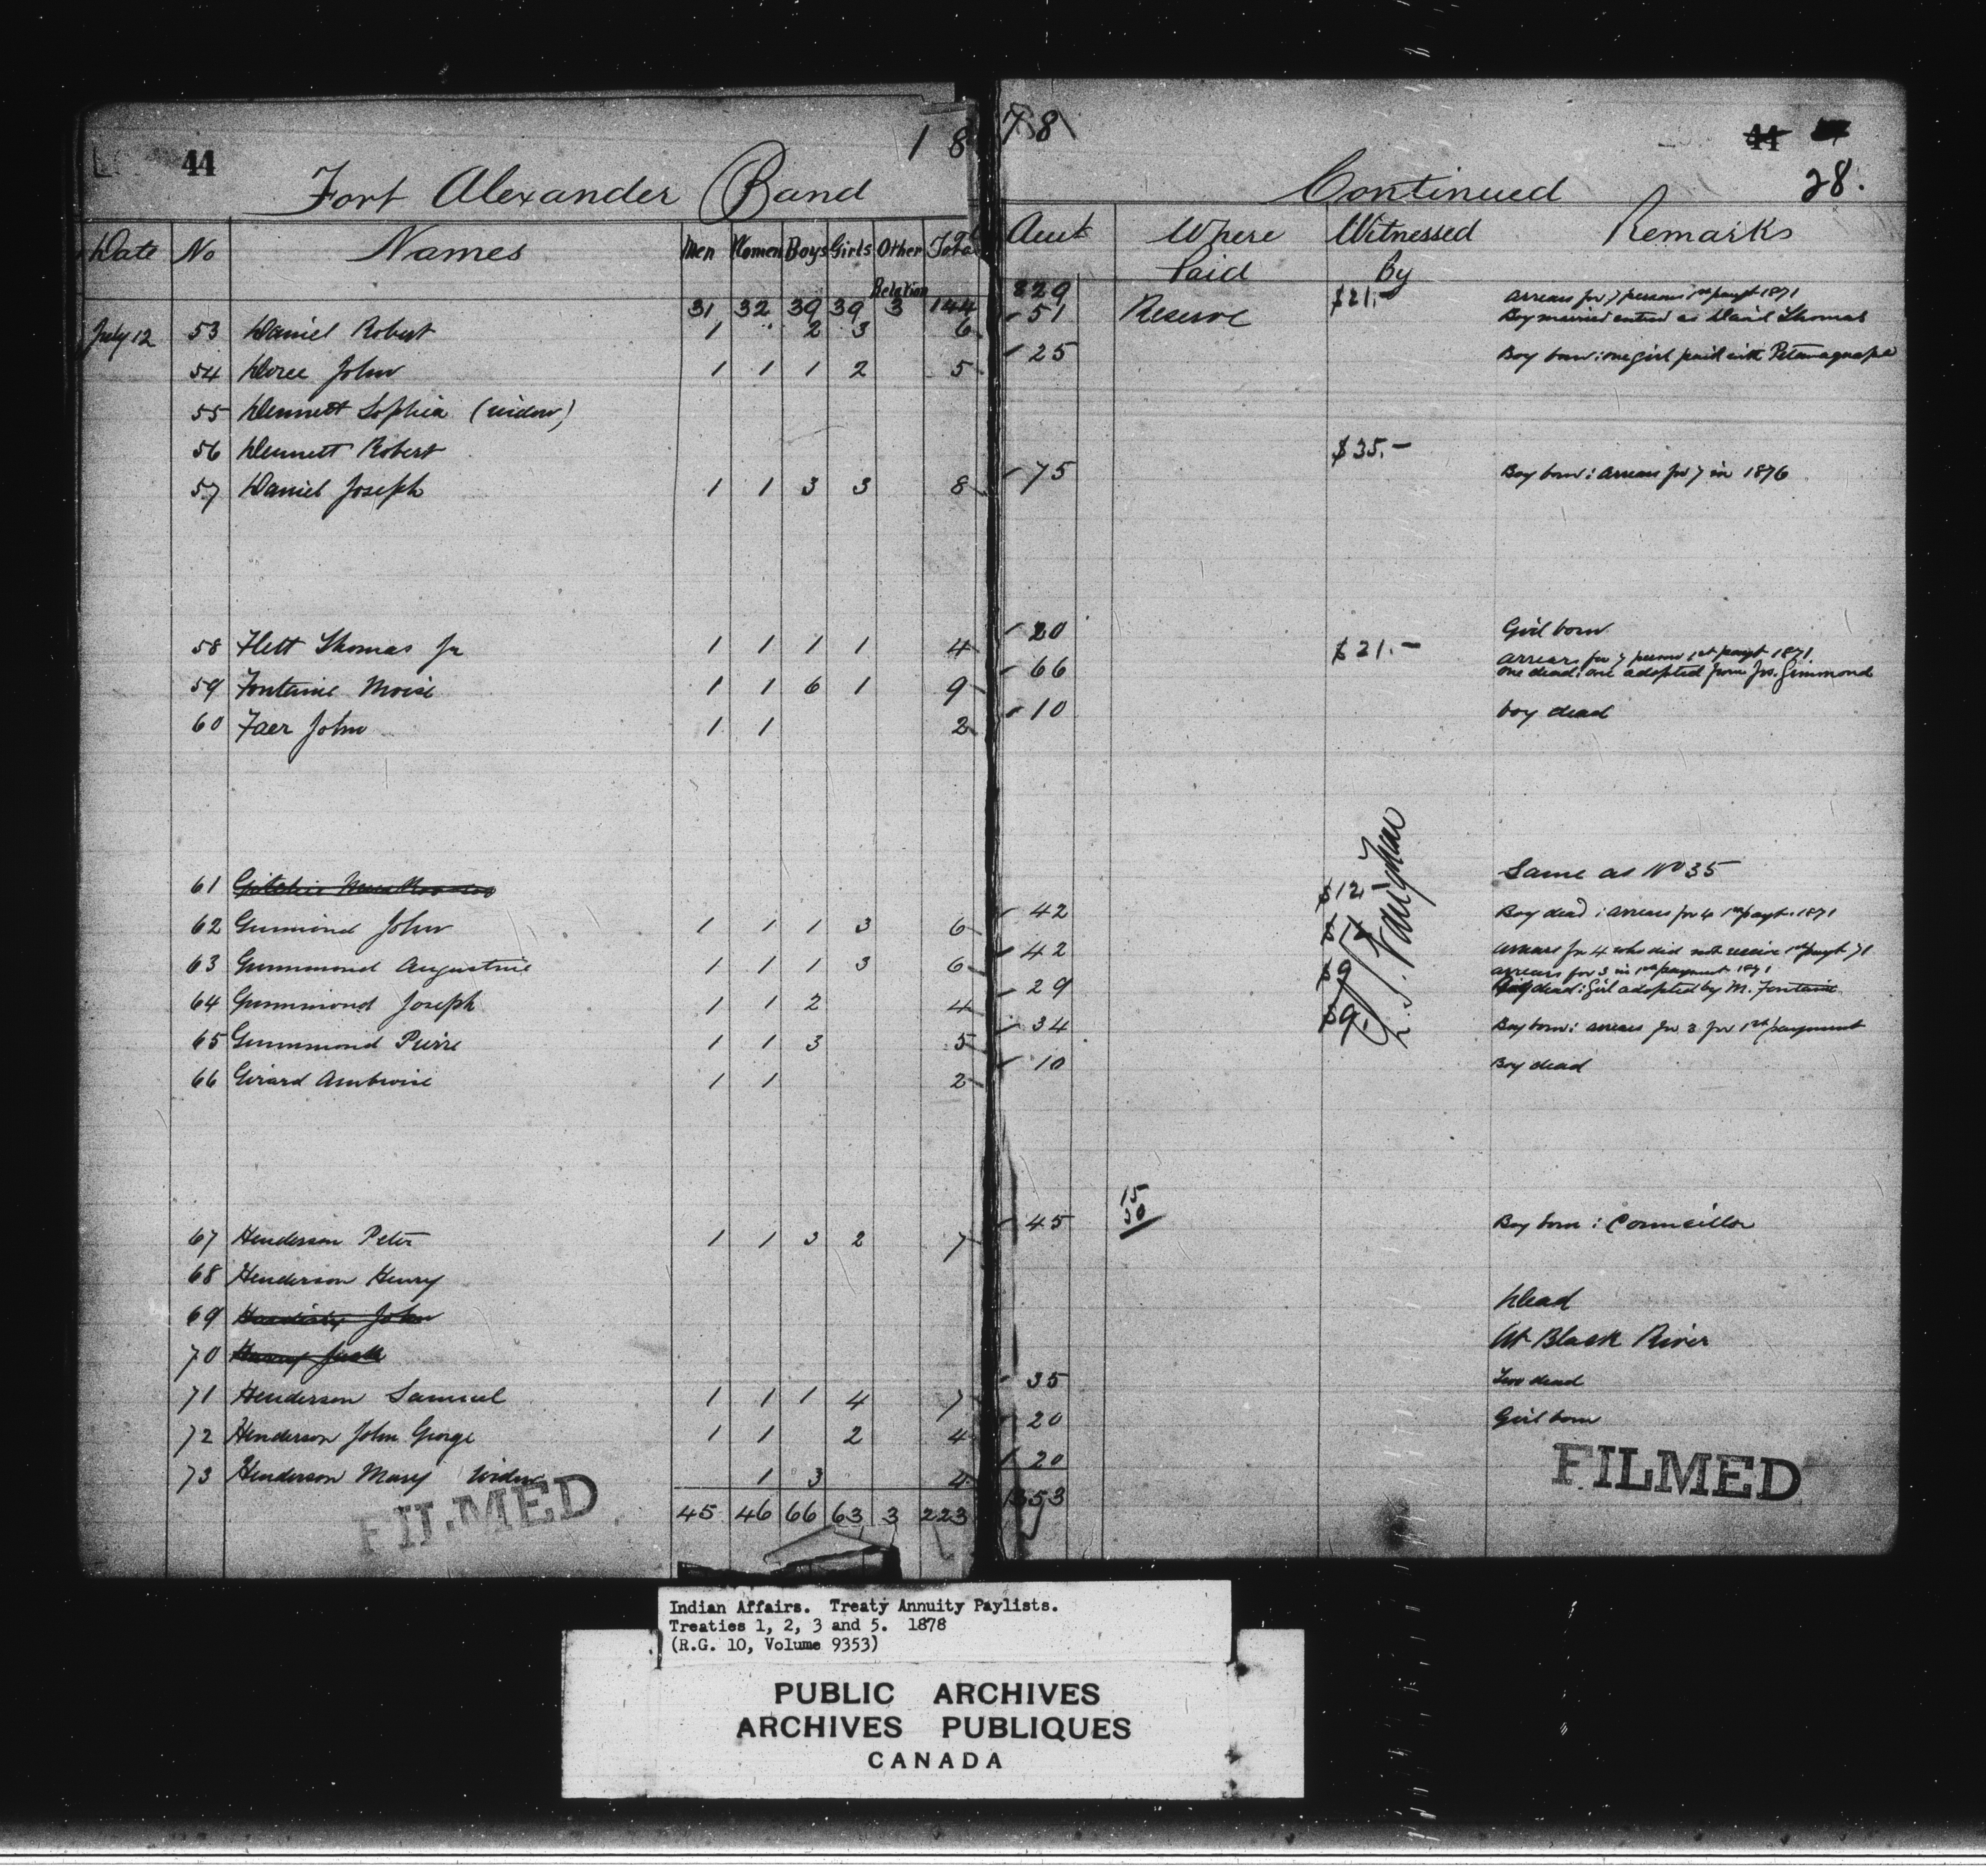 44
1878
44
28.
Fort Alexander Band Continued
Date No Names Men Women Boys Girls Other Relation Total Amt Where Paid Witnessed By Remarks
31 32 39 39 3 144 829 $21.- Arrears for 7 persons 1st paymt 1871
July 12 53 Daniel Robert 1 " 2 3 6 51 Reserve Boy married entered as David Thomas
54 John 1 1 1 2 5 25 Boy born: one girl paid with
55 Dennett Sophia (widow)
56 Dennett Robert $35.-
57 Daniel Joseph 1 1 3 3 8 75 Boy born: arrears for 7 in 1876
58 Flett Thomas Jr 1 1 1 1 4 20 Girl born
$21.- arrears for 7 persons 1st paymt 1871
59 Fontaine Moise 1 1 6 1 9 66 one dead: one adopted from Jos. Gimmond
60 Faer John 1 1 2 10 boy dead
61 Gitchie Same as No 35
62 Gummond John 1 1 1 3 6 42 $12 Boy dead: arrears for 4 1st paymt. 1871
63 Gummond Augustine 1 1 1 3 6 42 arrears for 4 who did not receive 1st paymt 71
arrears for 3 in 1st payment 1871
64 Gummond Joseph 1 1 2 4 29 $9 dead: Girl adopted by M. Fontaine
65 Gummond Pierre 1 1 3 5 34 $9. Boy born: arrears for 3 for 1st payment
66 Girard Ambroise 1 1 2 10 Boy dead
15
30
67 Henderson Peter 1 1 3 2 7 45 Boy born: Councillor
68 Henderson Henry
69 John Dead
70 Henry Jack At Black River
71 Henderson Samuel 1 1 1 4 7 35 Two dead
72 Henderson John George 1 1 2 4 20 Girl born
73 Henderson Mary Widow 1 3 4 20
45 46 66 63 3 223 1353
FILMED
FILMED
Indian Affairs. Treaty Annuity Paylists.
Treaties 1, 2, 3 and 5. 1878
(R.G. 10, Volume 9353)
PUBLIC ARCHIVES
ARCHIVES PUBLIQUES
CANADA